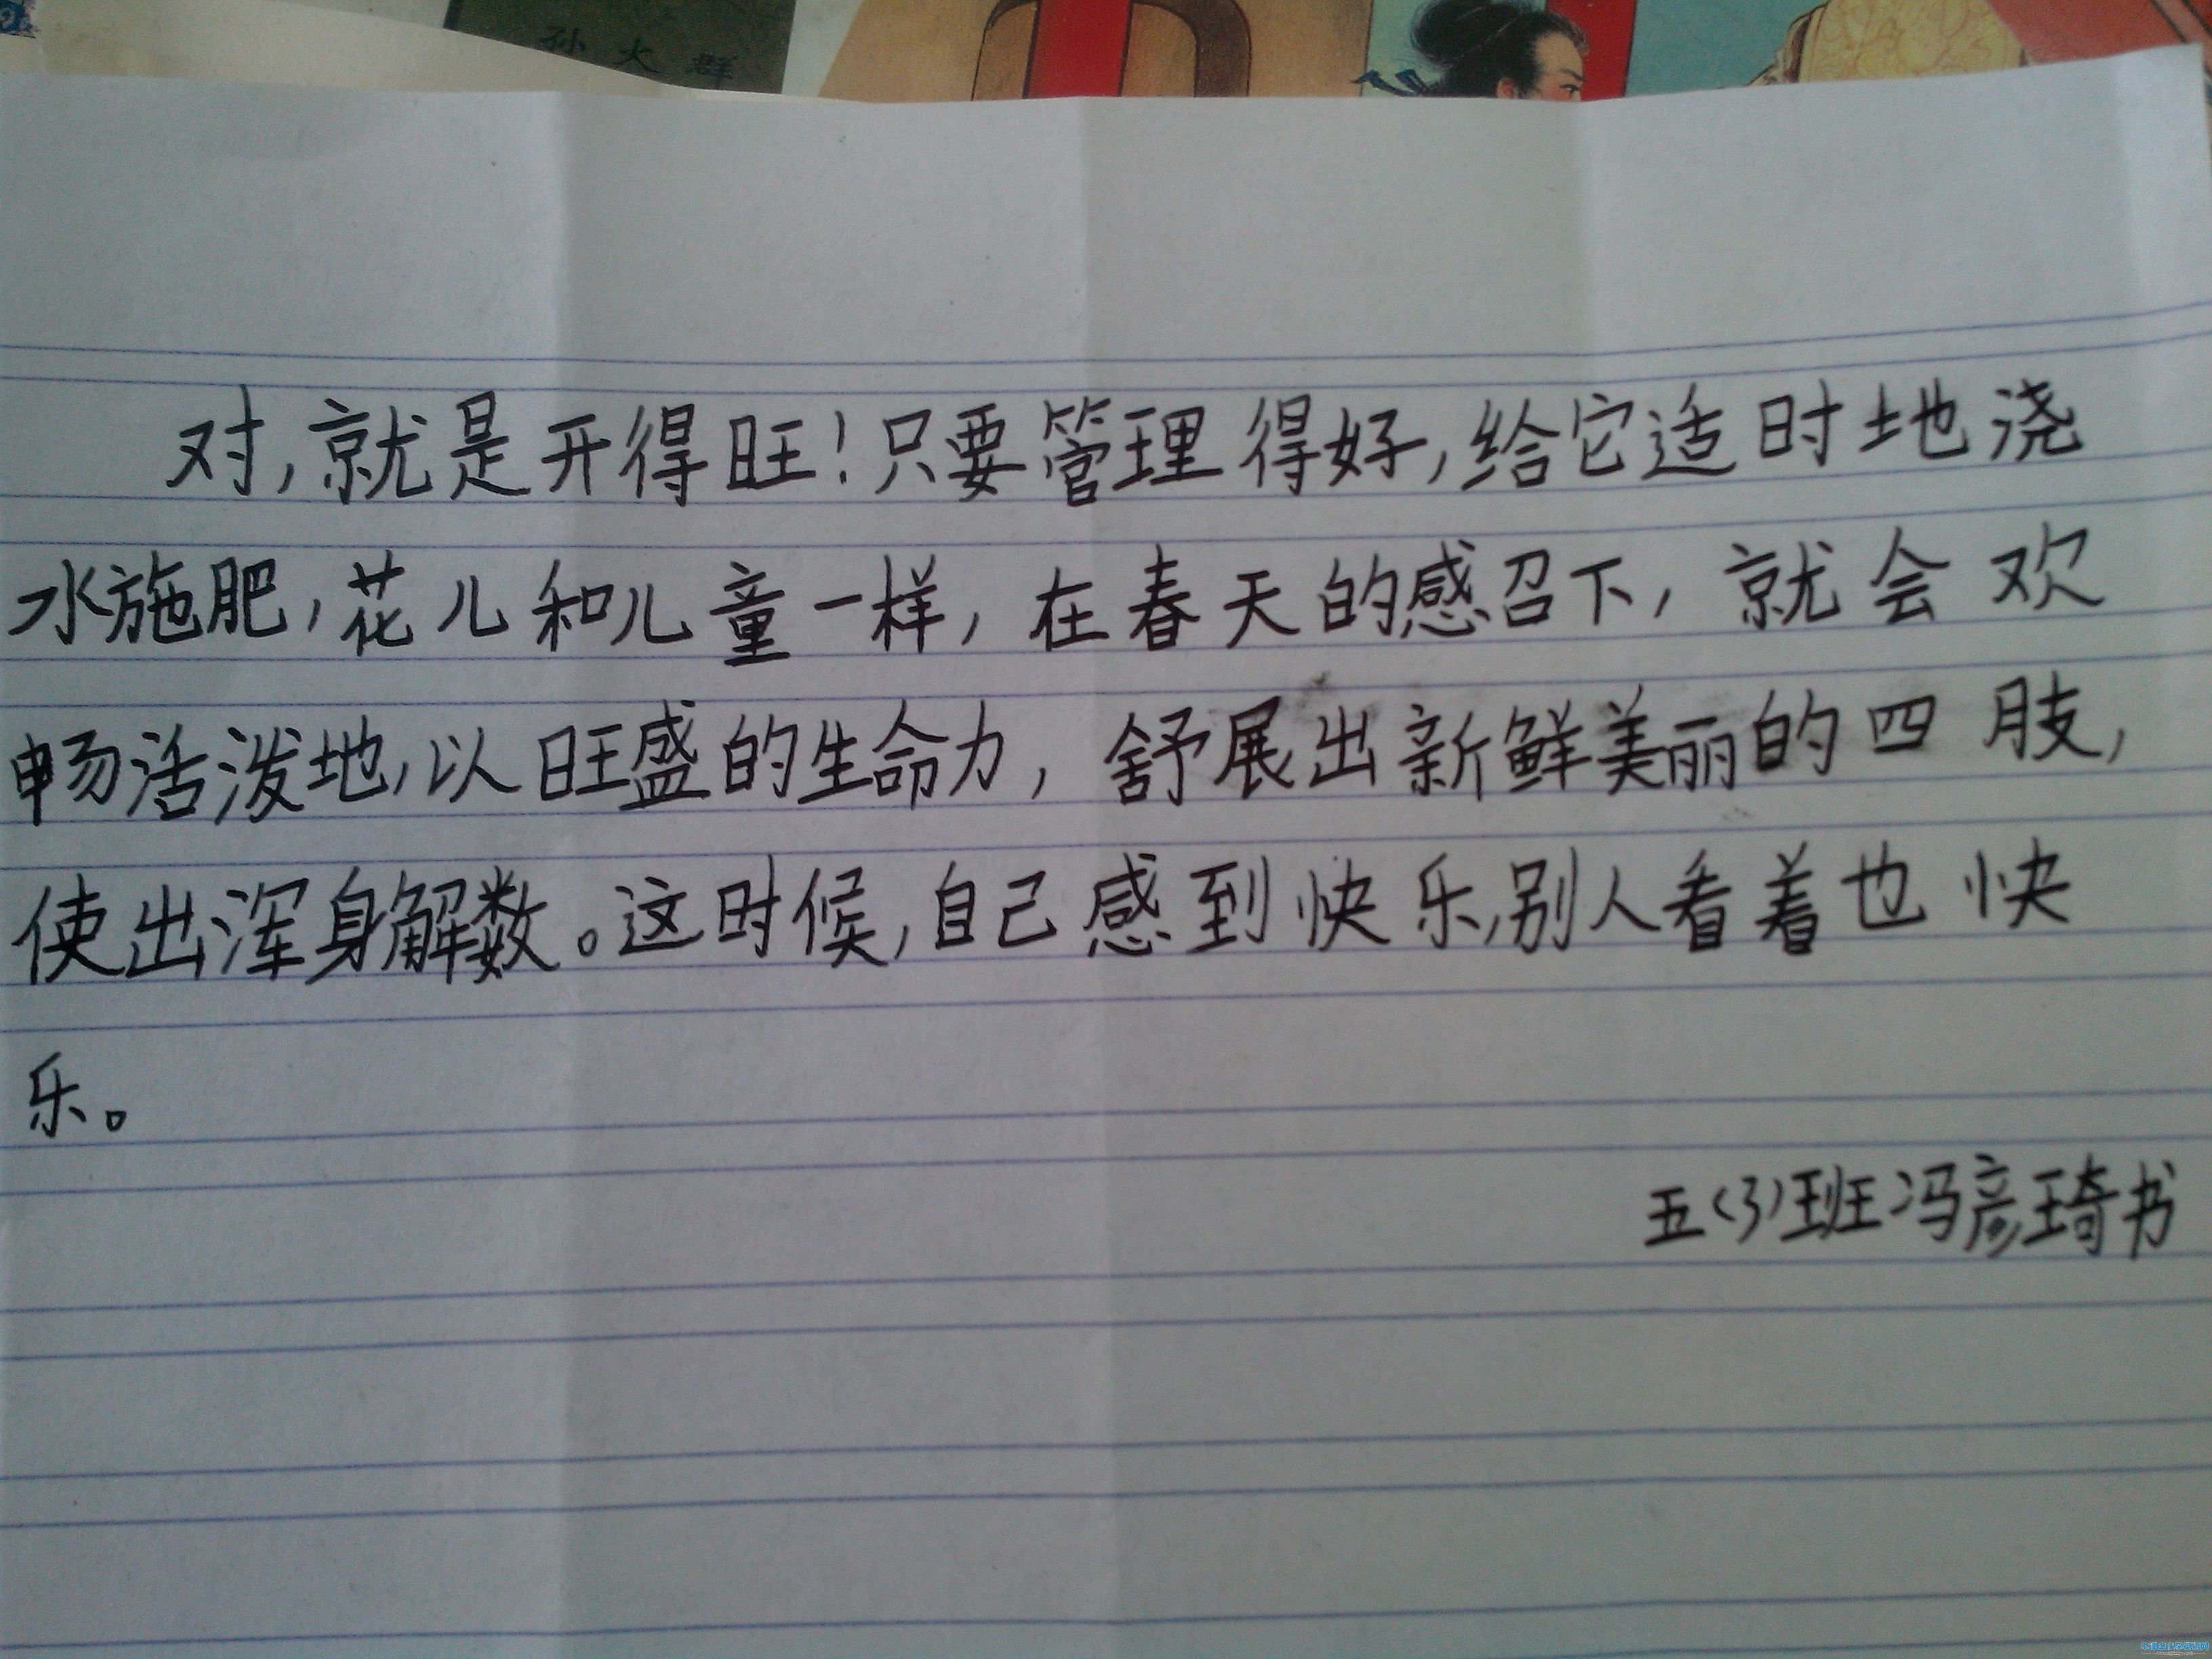 孙大群
对,就是开得旺!只要管理得好,给它适时地浇
水施肥,花儿和儿童一样,在春天的感召下,就会欢
畅活泼地,以旺盛的生命力,舒展出新鲜美丽的四肢,
使出浑身解数。这时候,自己感到快乐,别人看着也快
乐。
五(3)班冯彦琦书